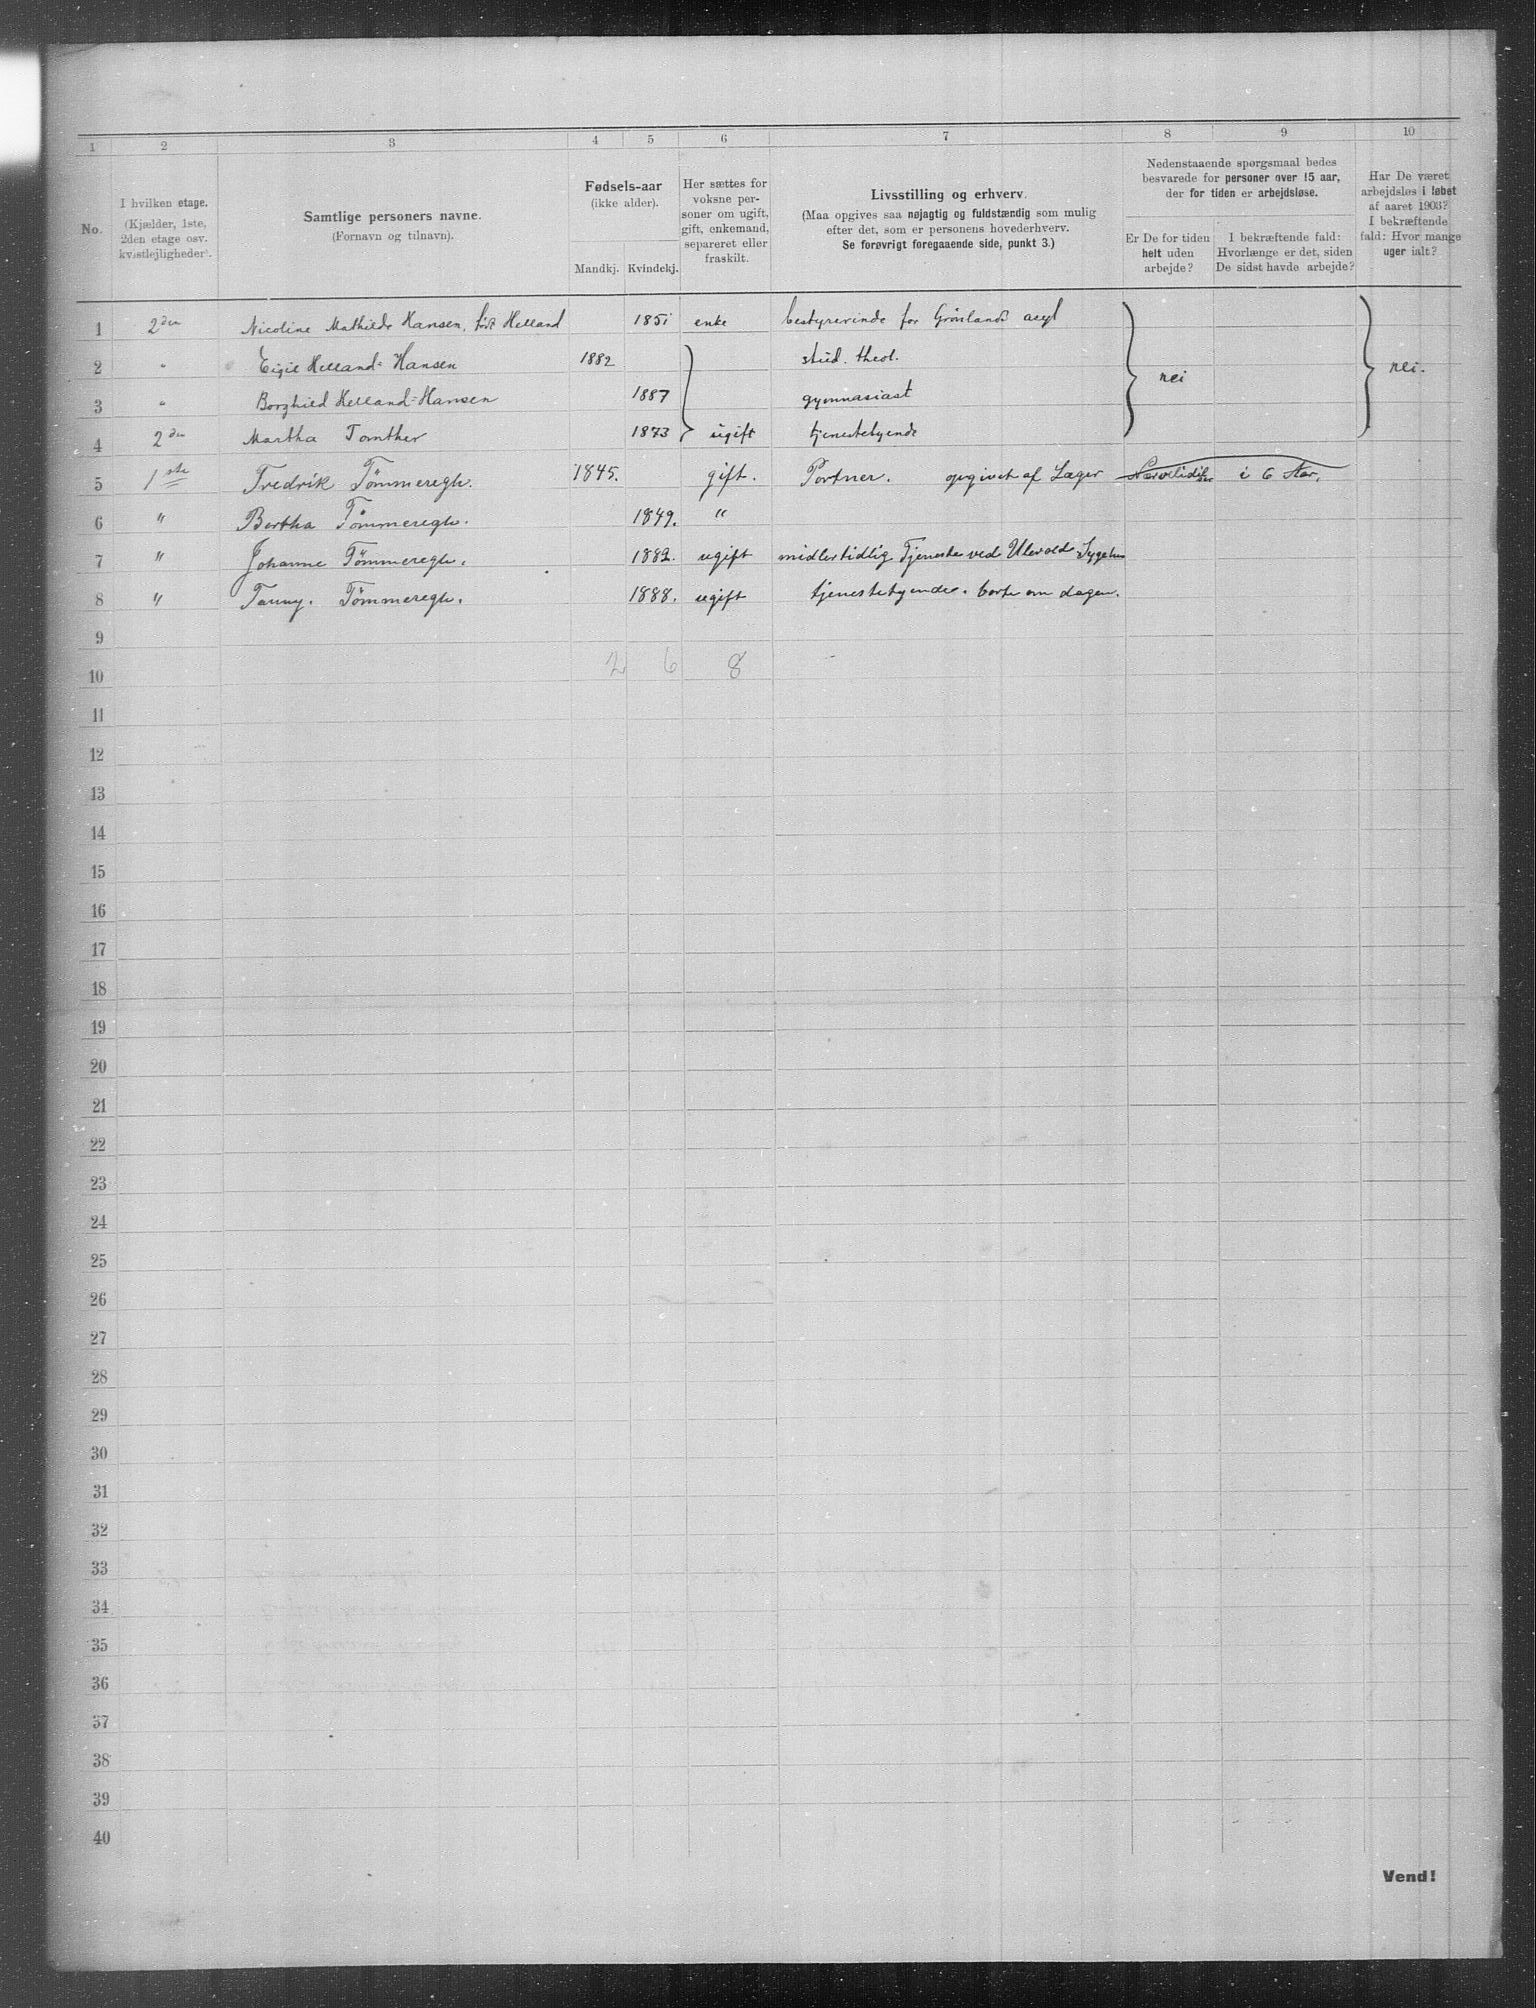 1 2 3 4 5 6 7 8 9 10
No.
I hvilken etage.
(Kjælder, 1ste,
2den etage osv.
kvistlejligheder).
Samtlige personers navne.
(Fornavn og tilnavn).
Fødsels-aar
(ikke alder).
Mandkj. Kvindekj.
Her sættes for
voksne per-
soner om ugift,
gift, enkemand,
separeret eller
fraskilt.
Livsstilling og erhverv.
(Maa opgives saa nøjagtig og fuldstændig som mulig
efter det, som er personens hovederhverv.
Se forøvrigt foregaaende side, punkt 3.)
Nedenstaaende spørgsmaal bedes
besvarede for personer over 15 aar,
der for tiden er arbejdsløse.
Er De for tiden
helt uden
arbejde?
I bekræftende fald:
Hvorlænge er det, siden
De sidst havde arbejde?
Har De været
arbejdsløs i løbet
af aaret 1903?
I bekræftende
fald: Hvor mange
uger ialt?
1 2den Nicoline Mathilde Hansen, født Helland 1851 enke bestyrerinde for Grønlands asyl
2 " Eigil Helland-Hansen 1882 stud. theol. nei nei.
3 " Borghild Helland-Hansen 1887 gymnasiast
4 2den Martha Tomther 1873 ugift tjenestetyende
5 1ste Fredrik Tømmeregh. 1845. gift. Portner. opgivet af Læger i 6 Aar.
6 " Bertha Tømmeregh. 1849. "
7 " Johanne Tømmeregh. 1882. ugift midlertidlig Tjeneste ved Ulevold Sygehus
8 " Fanny. Tømmeregh. 1888. ugift tjenestetyende. borte om dagen.
9
10 2 6 8
11
12
13
14
15
16
17
18
19
20
21
22
23
24
25
26
27
28
29
30
31
32
33
34
35
36
37
38
39
40
Vend!